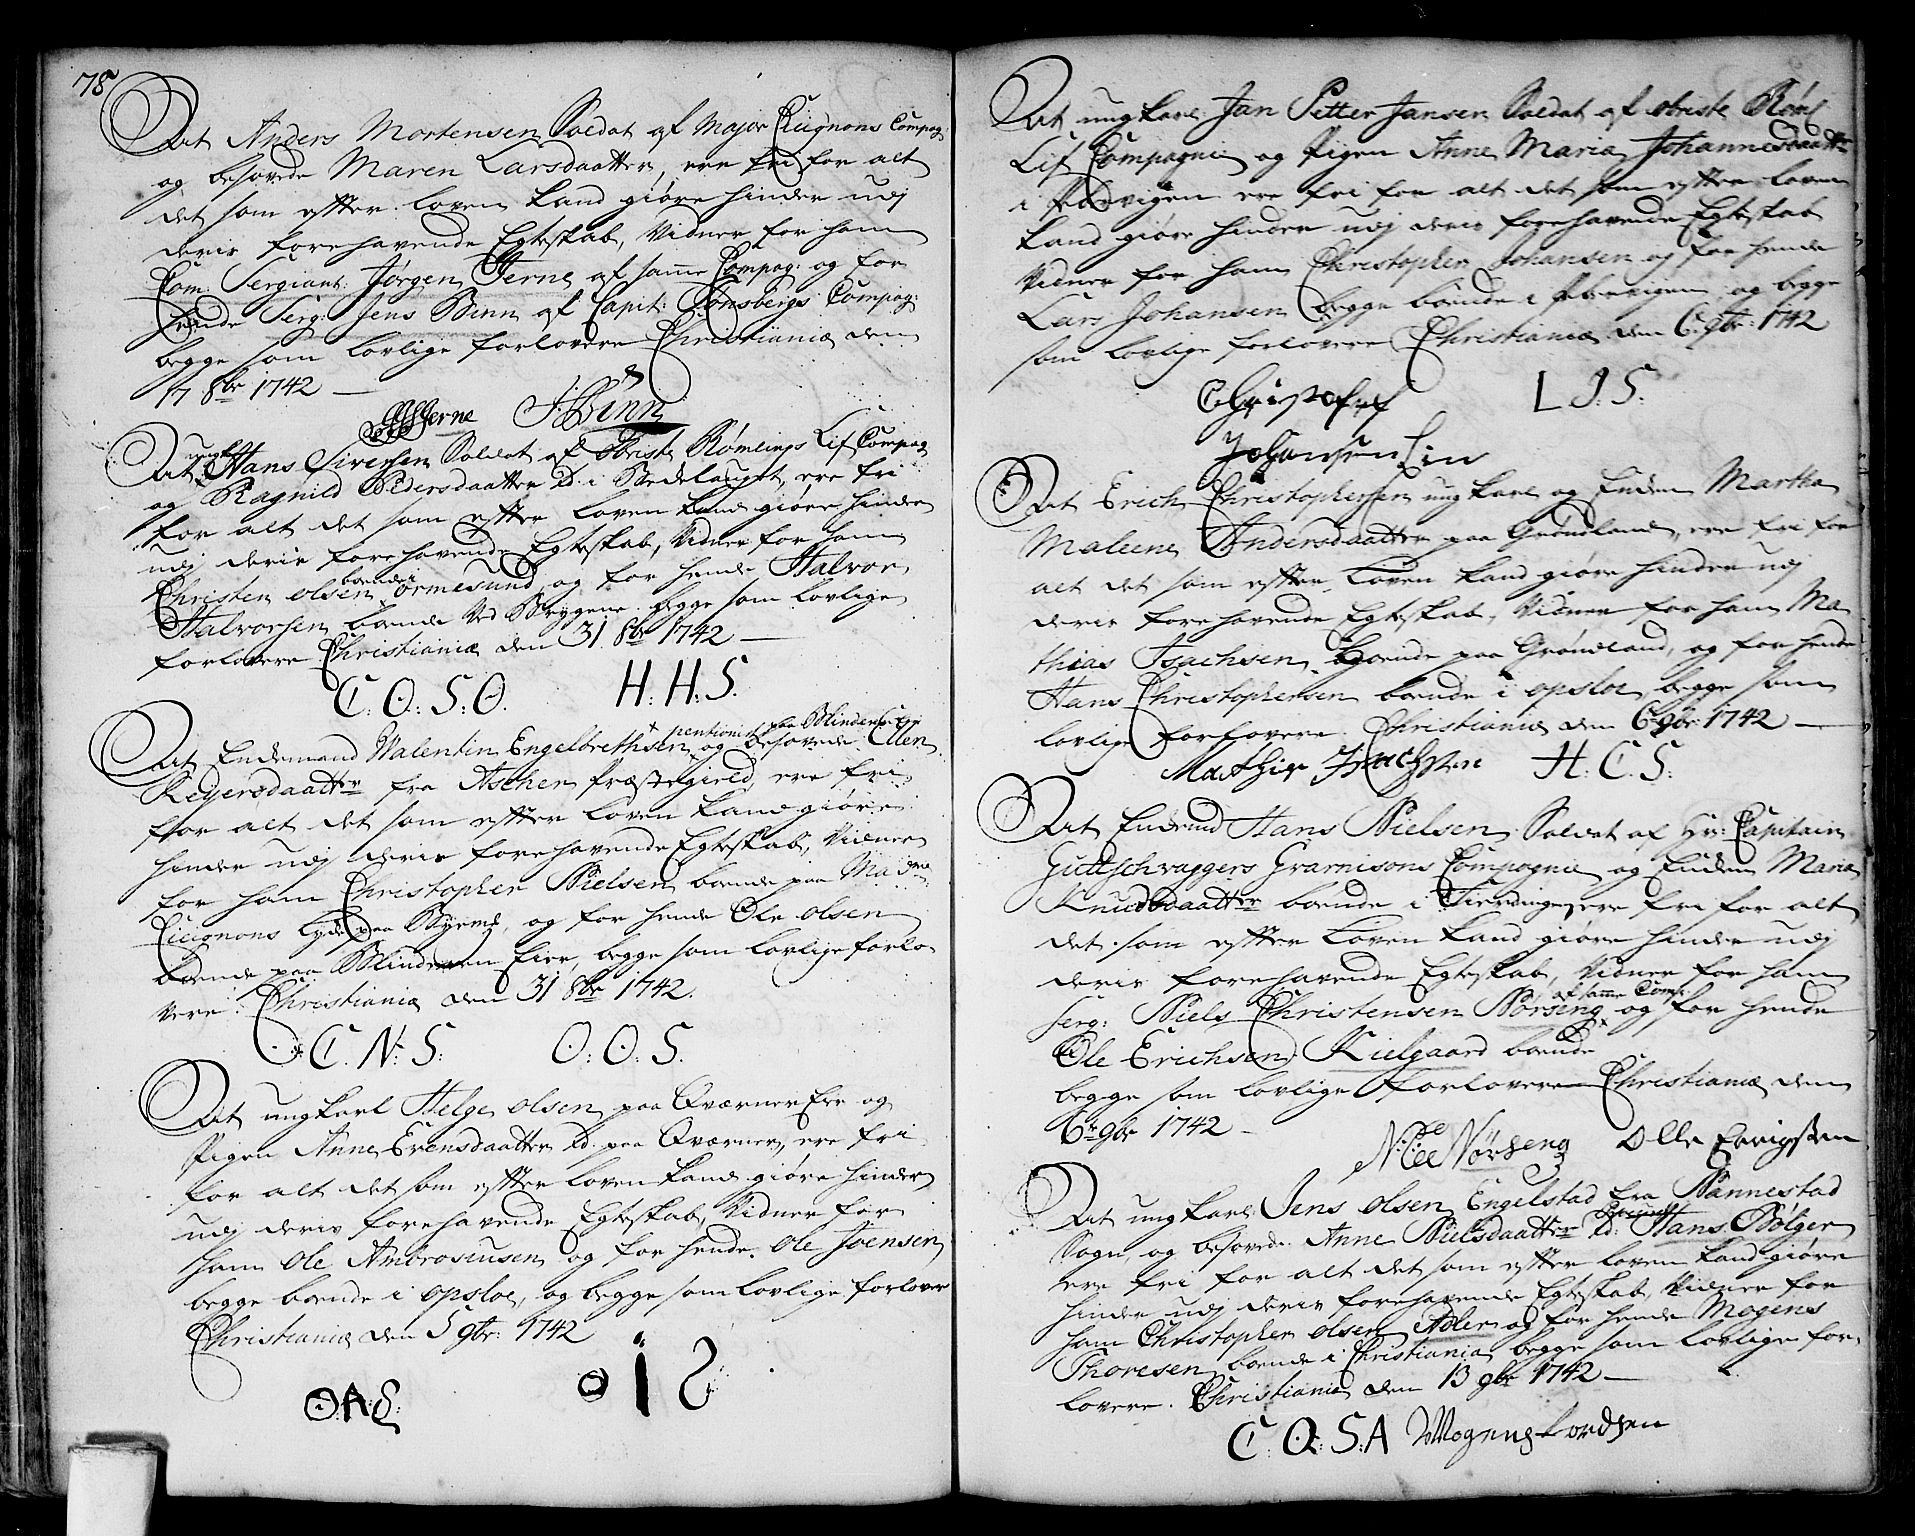 78
At Anders Mortensen Soldat af Major Cicignons Compag:
og beslovede Maren Larsdaatter, ere fri for alt
det som effter loven kand giöre hinder udj
deris forehavende Egteskab, Vidner for ham
Com: Sergiant: Jørgen Jerne af samme Compag: og for
hende Serg: Jens Binn af Capit: Tønsbergs Compag:
begge som lovlige forlovere Christiania den
17 8br 1742
Jerne J: Binn
At ungk: Hans Siversen Soldat af Obriste Rømlings Lif Compag
og Ragnild Pedersdaatter Td: i Bedelaugt, ere fri
for alt det som effter loven kand giöre hinder
udj deris forehavende Egteskab, Vidner for ham
Christen olsen boende i ormesund, og for hende Halvor
Halvorsen boende ved Brygene begge som lovlige
forlovere Christiania den 31 8br 1742
C: O: S: O. H: H: S.
At Enckemand Walentin Engelbrethsen pentionist paa Blindern Eje og beslovede Ellen
Reyersdaatter fra Ascher præstegield, ere fri
for alt det som effter loven kand giöre
hinder udj deris forehavende Egteskab, Vidner
for ham Christopher Nielsen boende paa Madme
Cicignons lyde paa Byemk, og for hende Ole olsen
boende paa Blindern Eier, begge som lovlige forlo-
vere. Christiania den 31 8br 1742.
C. N: S: O: O: S.
At ungkarl Helge olsen paa Qværner Eie og
Pigen Anne Evensdaatter Td: paa Qværner, ere fri
for alt det som effter loven kand giöre hinder
udj deris forehavende Egteskab, Vidner for
ham Ole Ambrosiusen og for hende Ole Joensen
begge boende i opsloe, og begge som lovlige forlover
Christiania den 5 9br: 1742
O:A:S: O I S
At ungkarl Jan Petter Jansen Soldat af obriste Röml
Lif Compagnie og Pigen Anne Maria Johannesdaatter
i Pibervigen ere fri for alt det som effter loven
kand giöre hinder udj deris forehavende Egteskab
Vidner for ham Christopher Johansen og for hende
Lars Johansen begge boende i Pibervigen, og begge
som lovlige forlovere Christiania den 6 9br: 1742
Christoffer L J: S.
Johansen Lin
At Erich Christophersen ungkarl og Encken Martha
Maleene Andersdaatter paa Grønland, ere fri for
alt det som effter Loven kand giöre hinder udj
deris forehavende Egteskab, Vidner for ham Ma
thias Isachsen boende paa Grønland, og for hende
Hans Christophersen boende i opsloe, begge som
lovlige forlovere. Christiania den 6 9br: 1742
Mathis Isachsen H: C: S:
At Enckmd Hans Nielsen Soldat af Hr: Capitain
Guttschraggers Gvarnisons Compagnie og Encken Maria
Knudsdaatter boende i Fierdingen, ere fri for alt
det som effter Loven kand giöre hinder udj
deris forehavende Egteskab, Vidner for ham
Serg: Niels Christensen Nörseng af samme Comp: og for hende
Ole Erichsen Kielgaard boende
begge som lovlige forlovere Christiania den
6te 9br 1742
N: Nörseng Olle Errigsen
At ungkarl Jens olsen Engelstad fra Nannestad
Sogn, og beslovede Anne Nielsdaatter Td: Hans Bölger
ere fri for alt det som effter loven kand giöre
hinder udj deris forehavende Egteskab, Vidner for
ham Christopher olsen Adler og for hende Mogens
Thoresen, boende i Christiania begge som lovlige for-
lovere. Christiania den 13 9br 1742
C: O: S: A Mogens tordsen